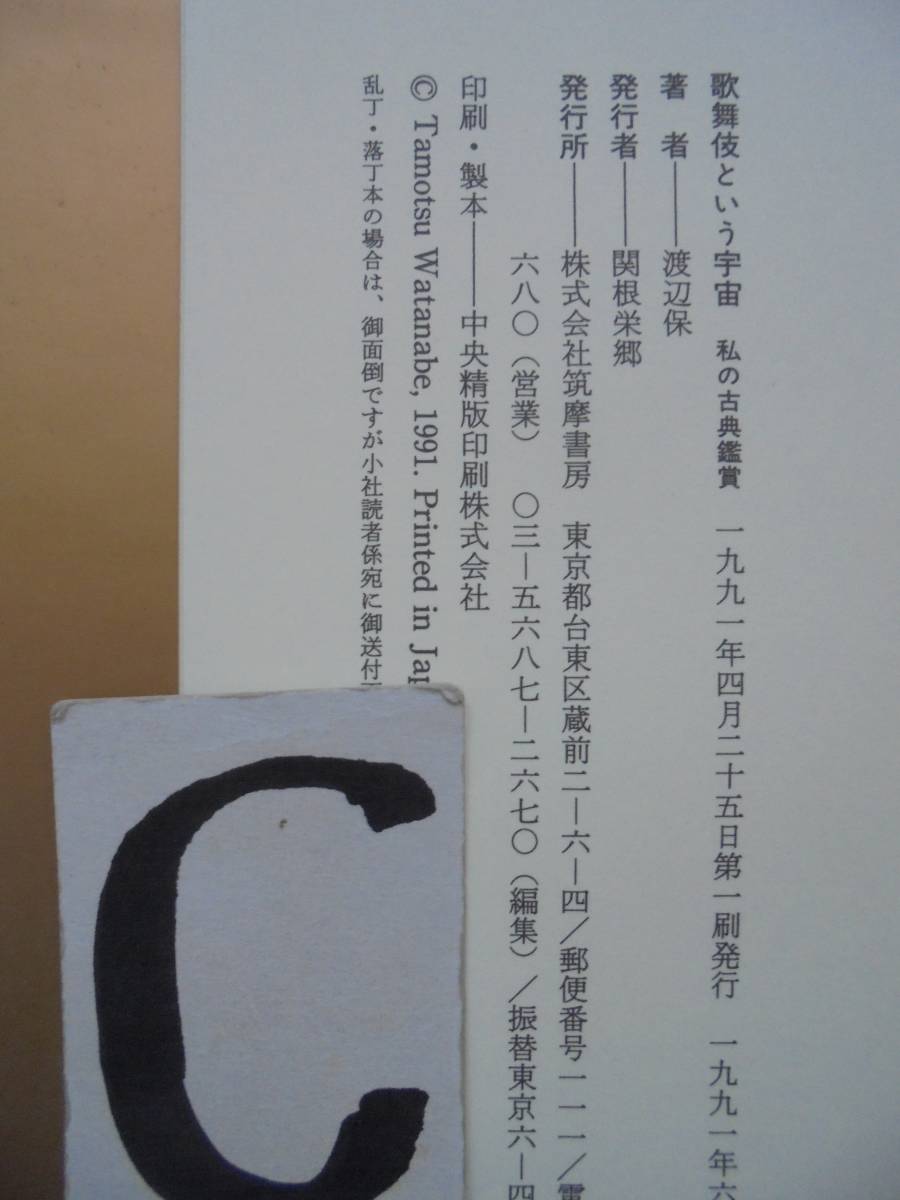 歌舞伎という宇宙　私の古典鑑賞　一九九一年四月二十五日第一刷発行　一九九一年六
著　者――渡辺保
発行者――関根栄郷
発行所――株式会社筑摩書房　東京都台東区蔵前二—六—四／郵便番号一一一／電
六八〇（営業）　〇三—五六八七—二六七〇（編集）／振替東京六—四
印刷・製本――中央精版印刷株式会社
© Tamotsu Watanabe, 1991. Printed in Jap
乱丁・落丁本の場合は、御面倒ですが小社読者係宛に御送付下
C